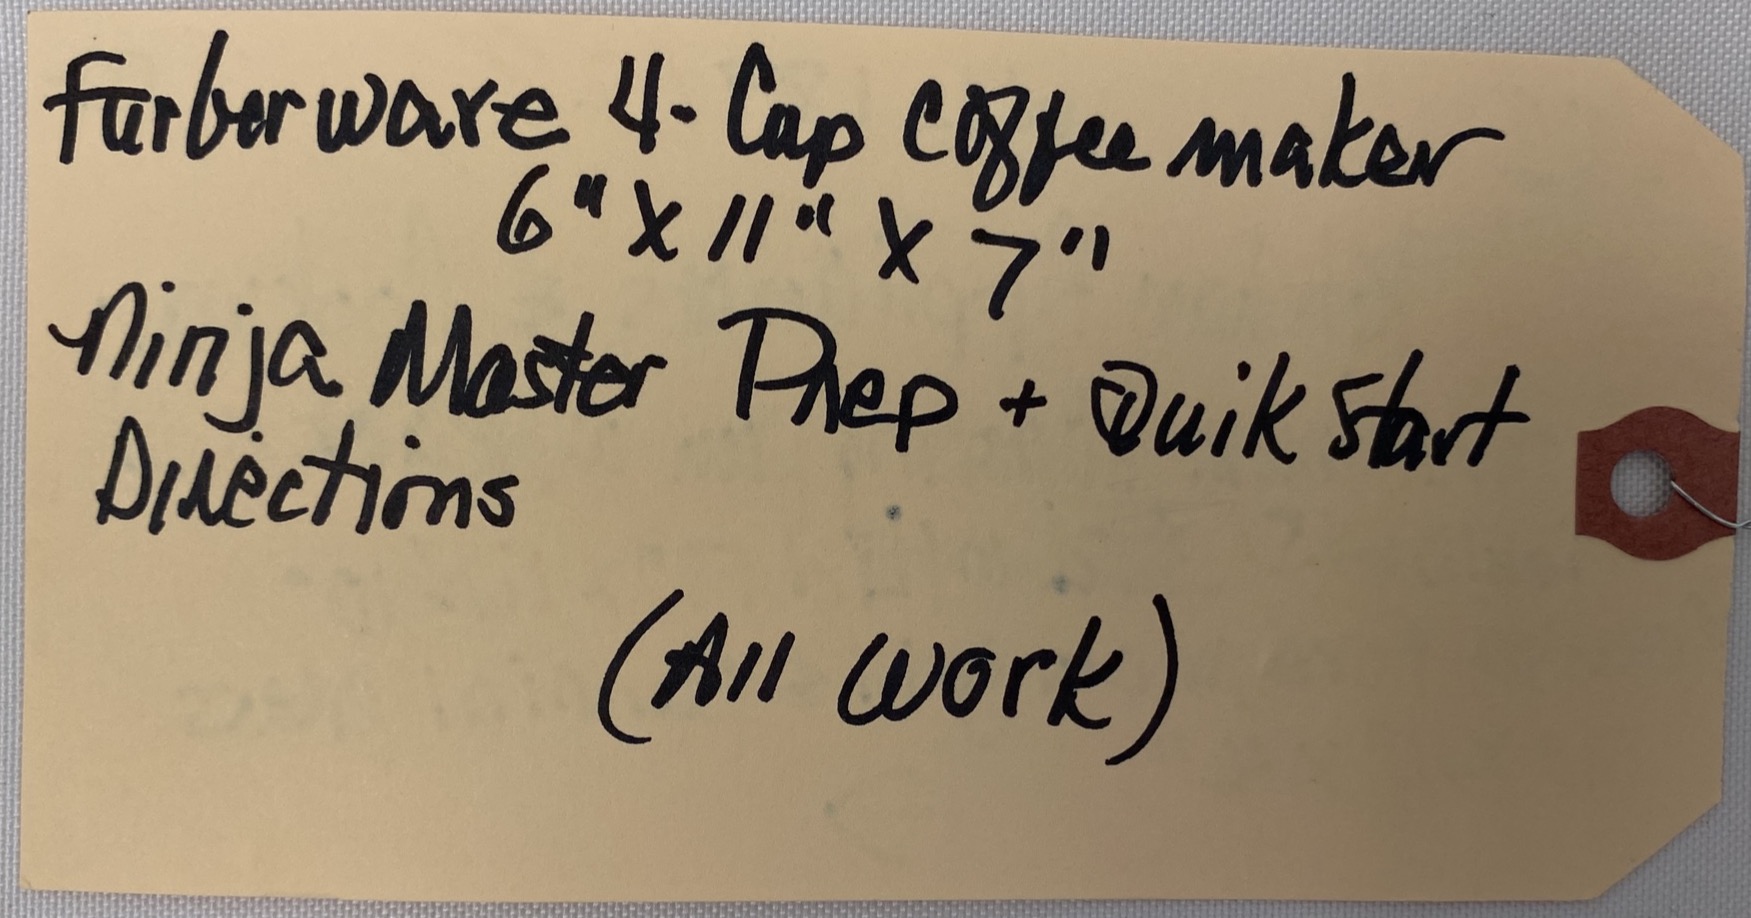 Farberware 4-Cup coffee maker
6" X 11" X 7"
Ninja Master Prep + Quik Start
Directions
(All work)